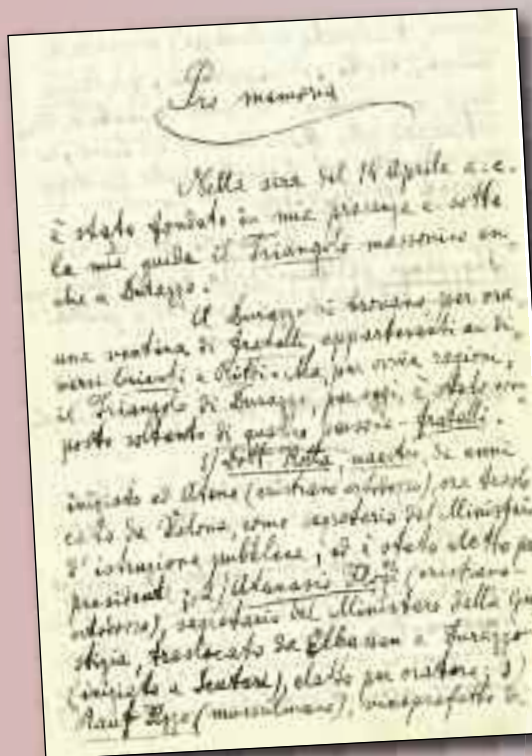 Pro memoria
Nella sera del 14 Aprile a.c.
è stato fondato in mia presenza e sotto
la mia guida il Triangolo massonico an-
che a Durazzo.
A Durazzo si trovano per ora
una ventina di fratelli appartenenti a di-
versi Orienti e Ritti. Ma, per ovvie ragioni,
il Triangolo di Durazzo, per oggi, è stato com
posto soltanto di quattro persone - fratelli.
1) Dott. Rotta, maestro, da anni
iniziato ad Atene (cristiano ortodosso), ora traslo
cato da Valona, come segretario del Ministero
d'istruzione pubblica, ed è stato eletto per
president; 2) Atanasio (cristiano
ortodosso), segretario del Ministero della Giu
stizia, traslocato da Elbassan a Durazzo
(iniziato a Scutari), eletto per oratore; 3)
Rauf (mussulmano), viceprefetto